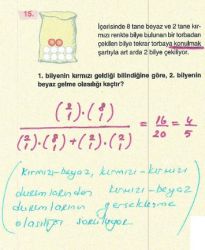 15.
İçerisinde 8 tane beyaz ve 2 tane kır-
mızı renkte bilye bulunan bir torbadan
çekilen bilye tekrar torbaya konulmak
şartıyla art arda 2 bilye çekiliyor.
1. bilyenin kırmızı geldiği bilindiğine göre, 2. bilyenin
beyaz gelme olasılığı kaçtır?
(2 1) . (8 1)
(2 1) . (8 1) + (2 1) . (2 1)
= 16/20 = 4/5
(kırmızı-beyaz, kırmızı-kırmızı
durumlarından kırmızı-beyaz
durumlarının gerçekleşme
olasılığı soruluyor)